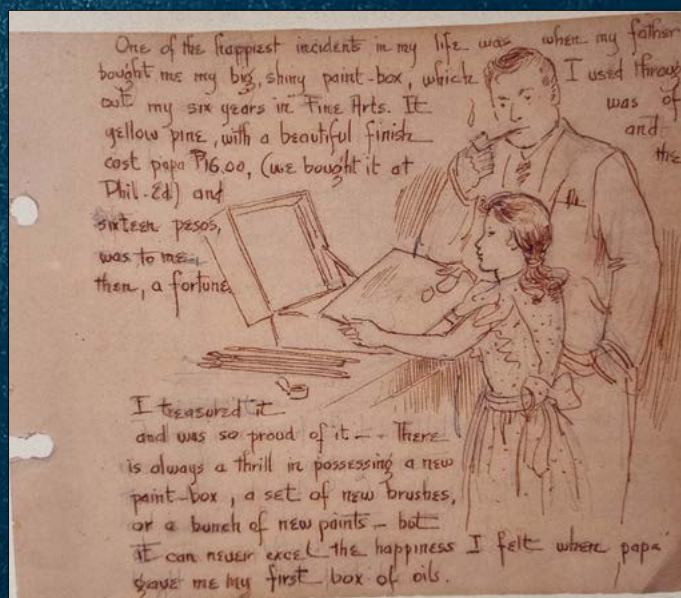 One of the happiest incidents in my life was when my father
bought me my big, shiny paint-box, which I used throug
out my six years in Fine Arts. It was of
yellow pine, with a beautiful finish and
cost papa ₱16.00, (we bought it at the
Phil-Ed) and
sixteen pesos,
was to me
then, a fortune.
I treasured it
and was so proud of it -- There
is always a thrill in possessing a new
paint-box, a set of new brushes,
or a bunch of new paints - but
it can never excel the happiness I felt when papa
gave me my first box of oils.